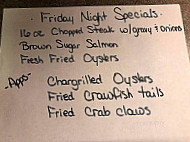 Friday Night Specials.
16 oz Chopped Steak w/gravy + Onions
Brown Sugar Salmon
Fresh Fried Oysters
-Apps- Chargrilled Oysters
Fried Crawfish tails
Fried Crab claws